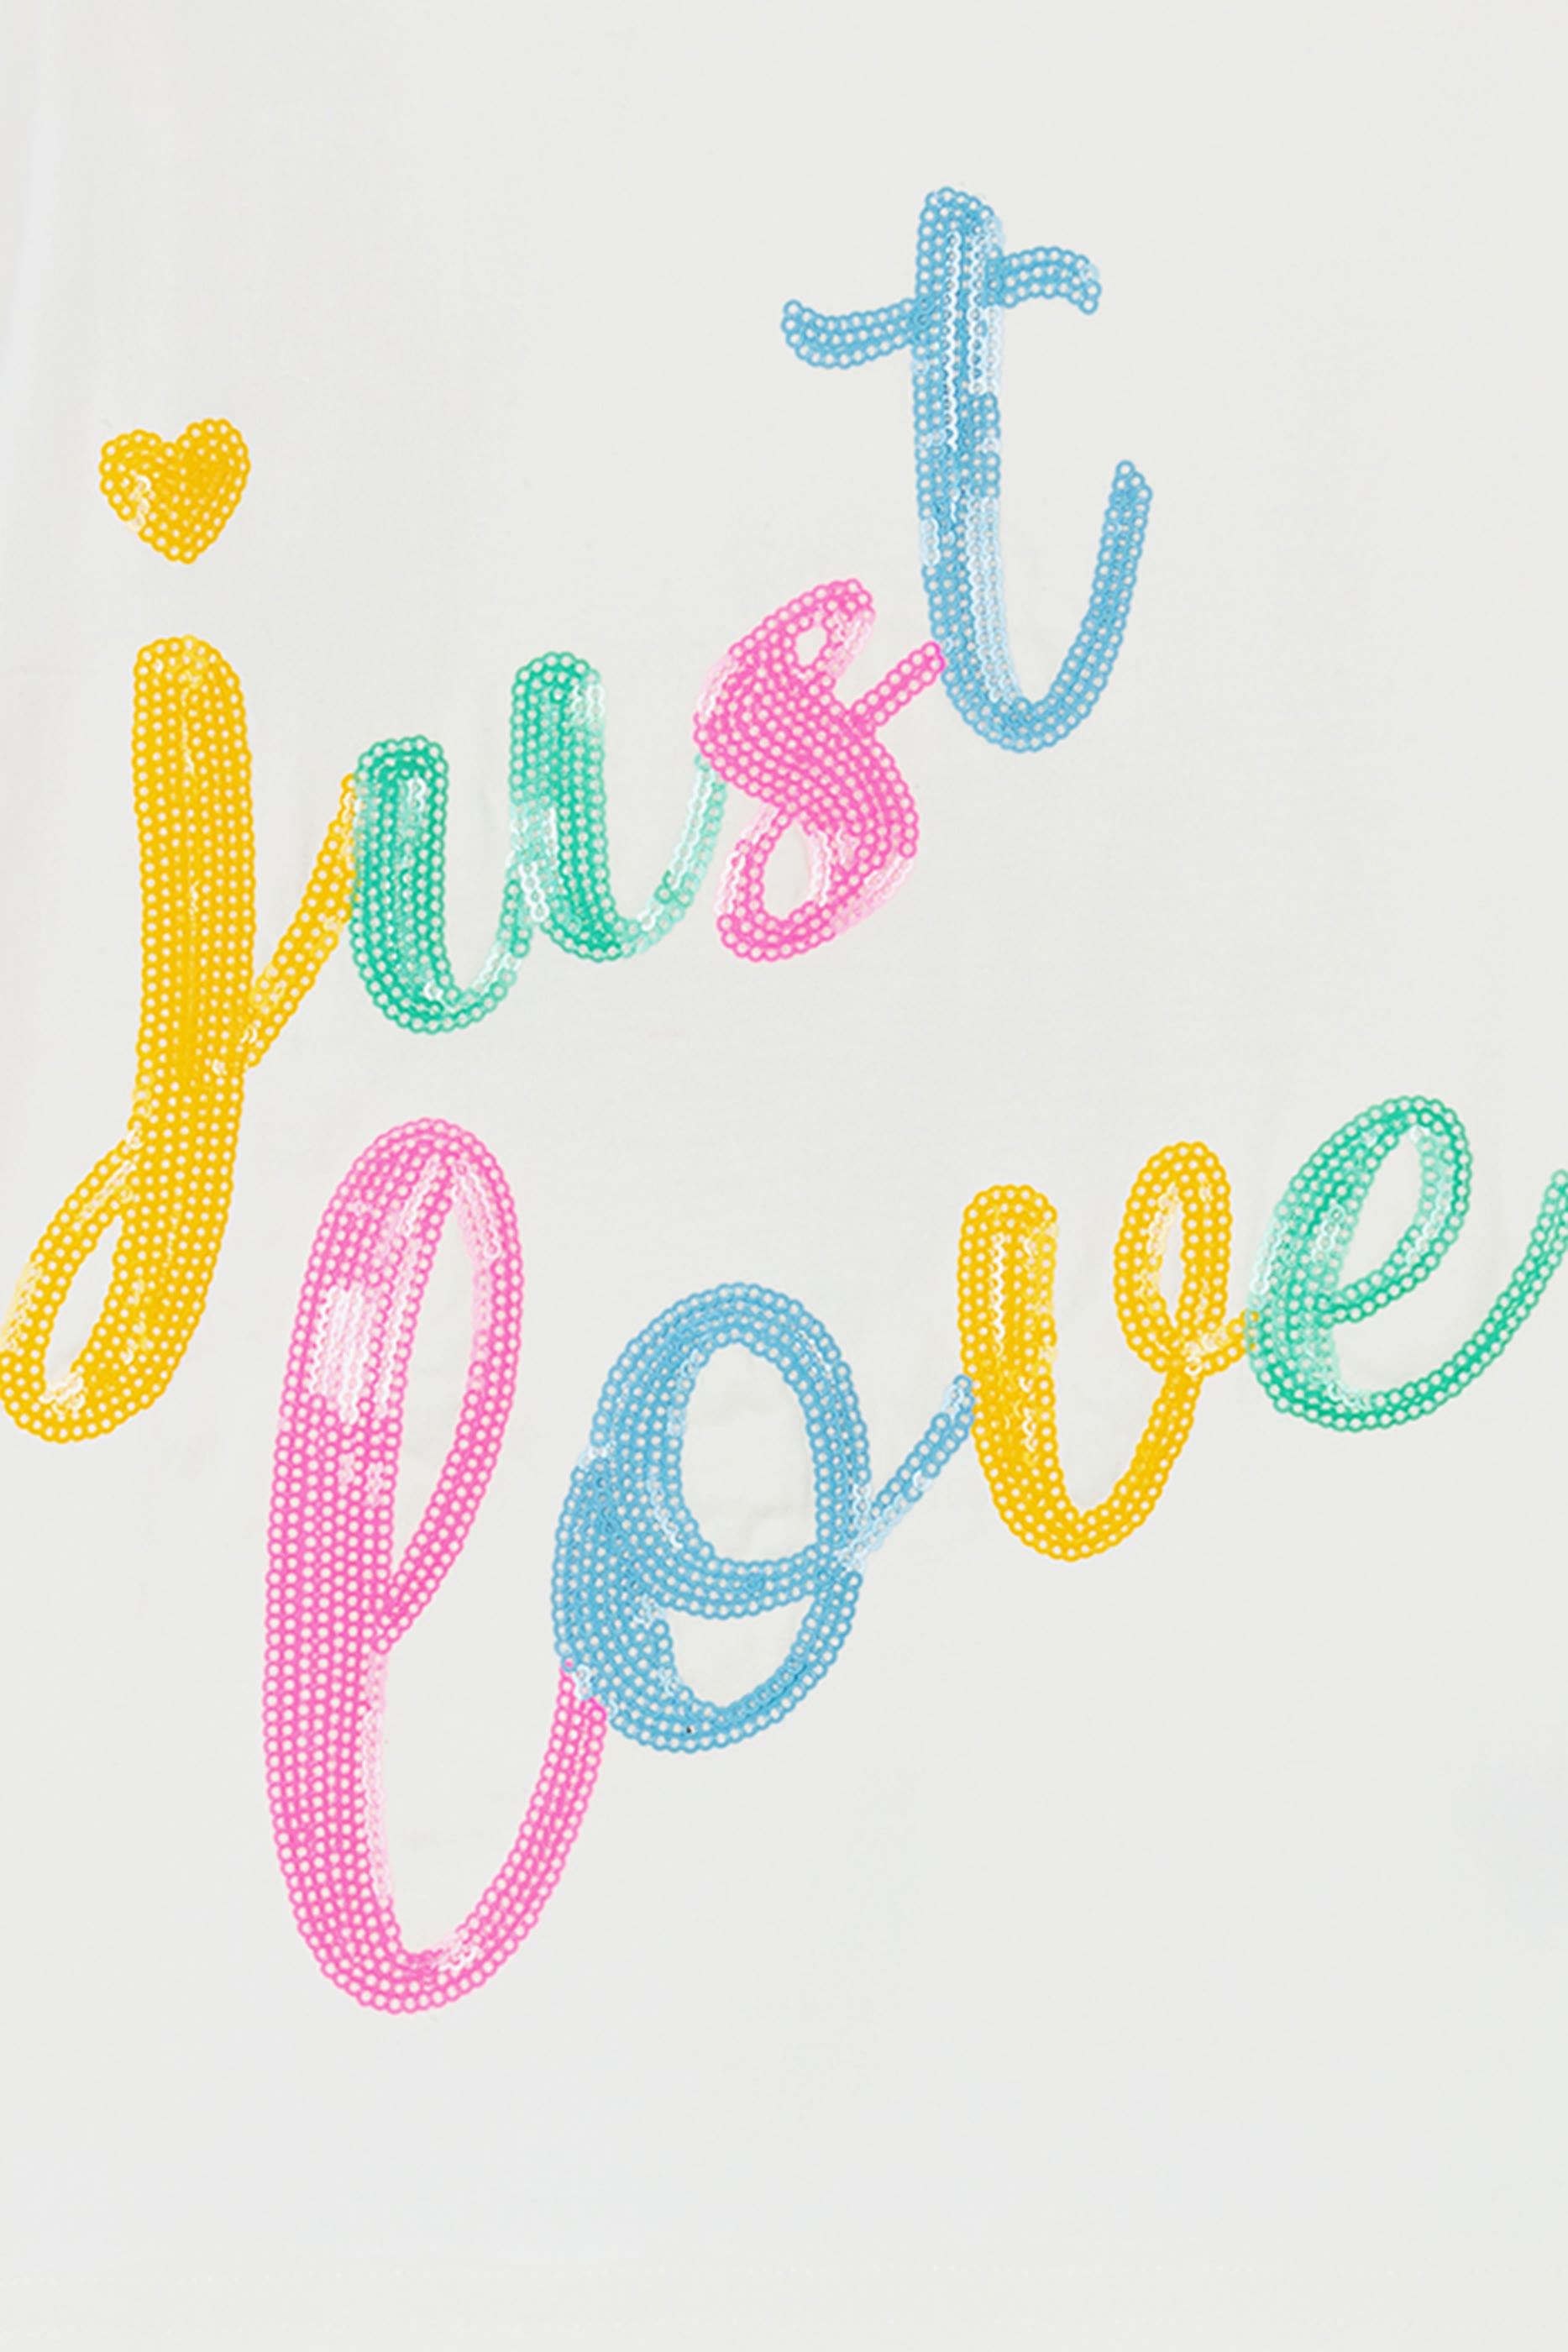 just
love